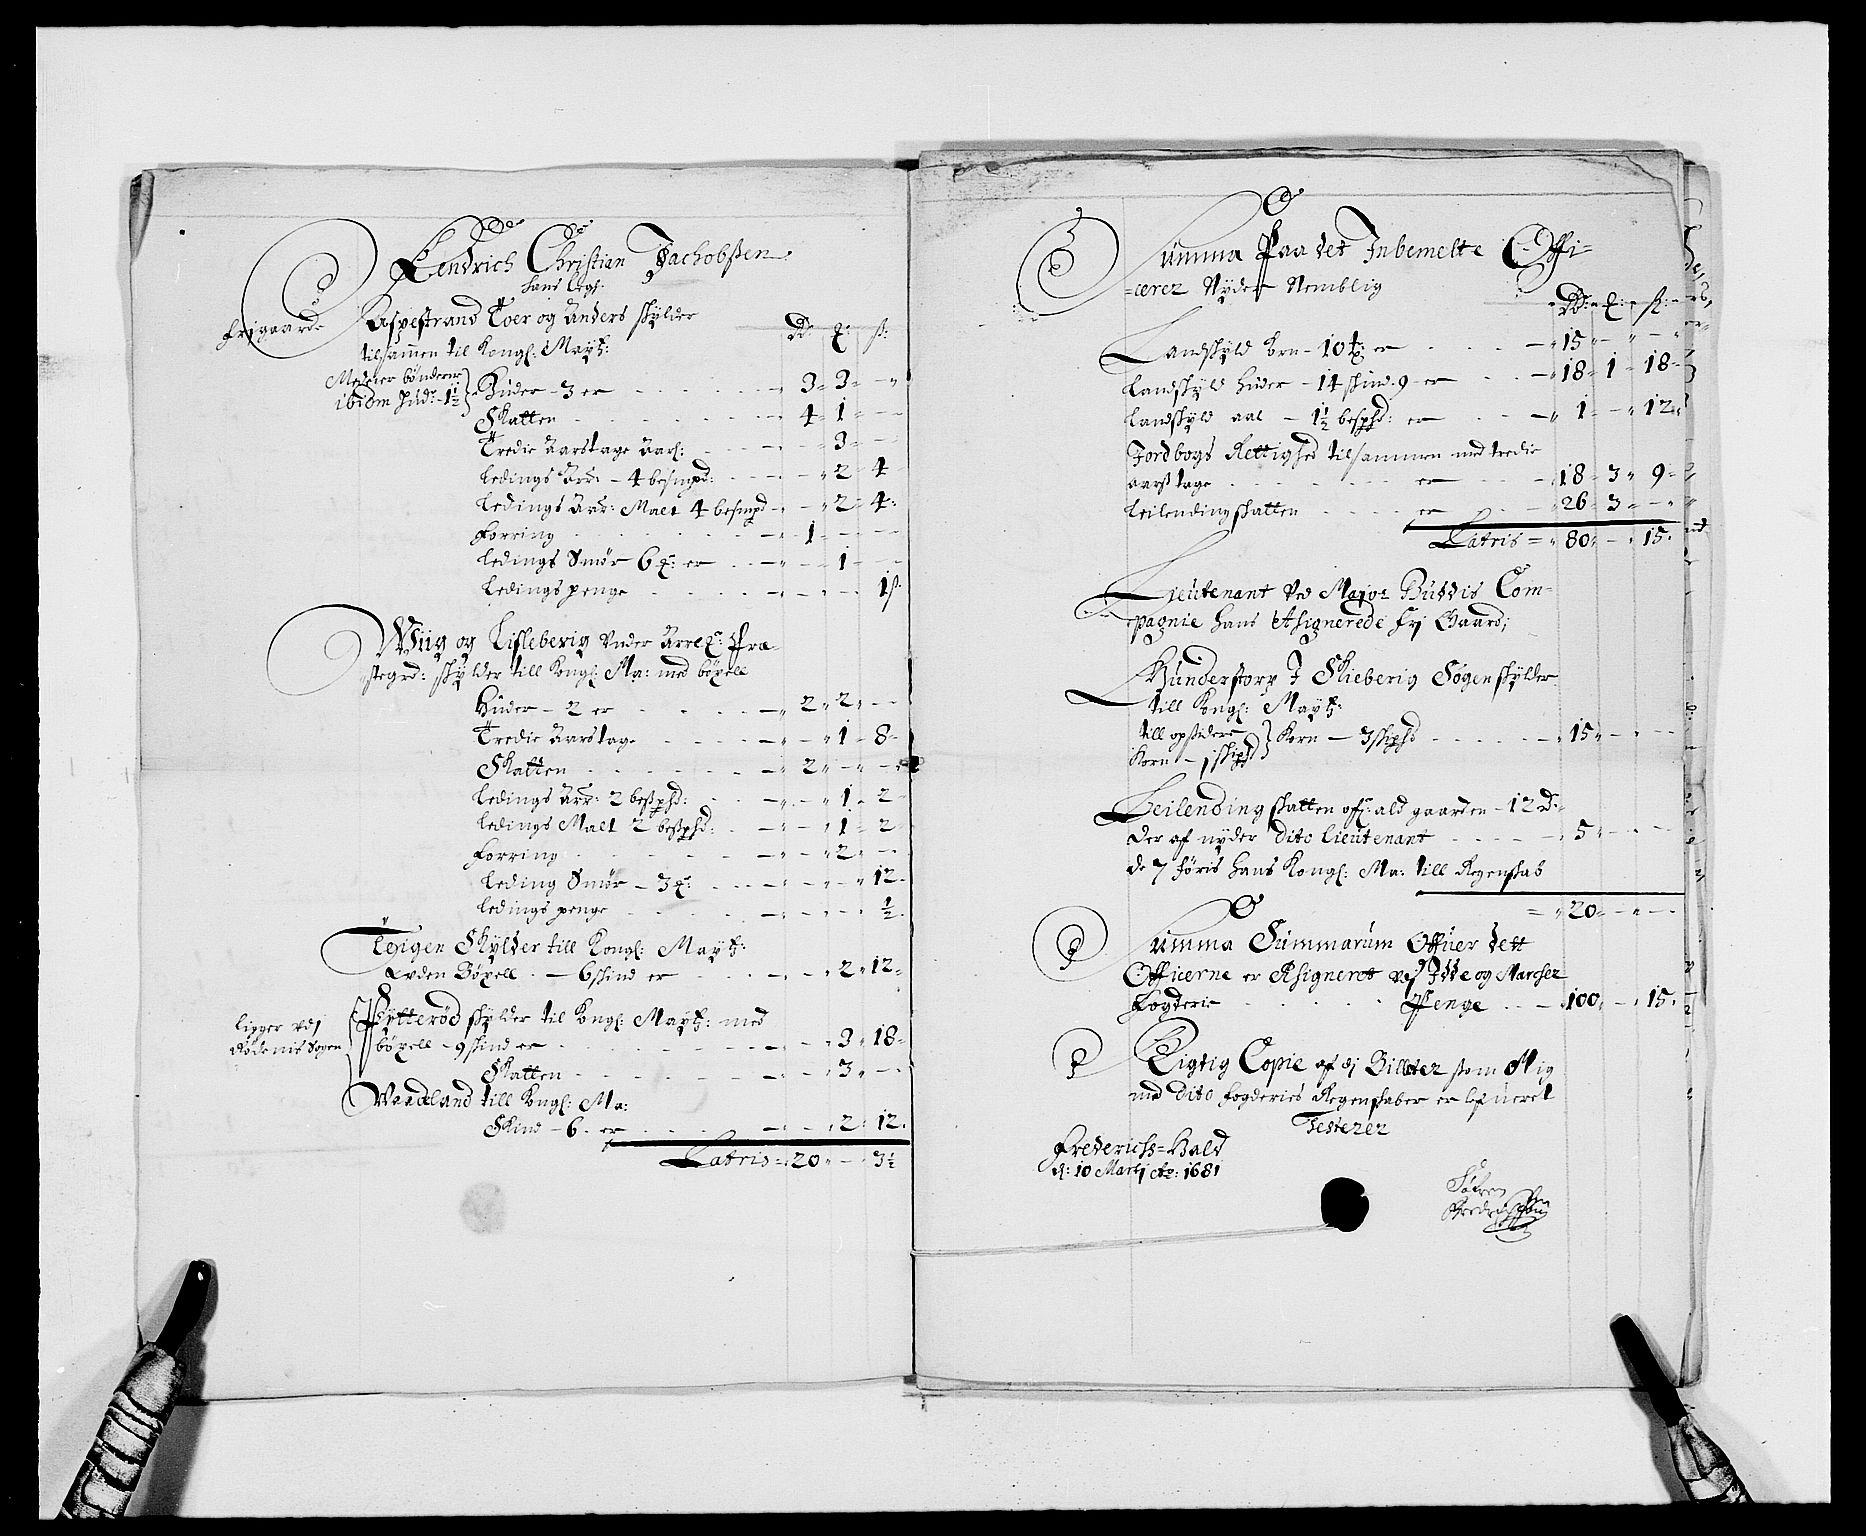 Fendrich Christian Jachobsßen
hans legh:
frjgaard: Aspestrand Toer og Anders skylder
tilsamen til Kongl: Maytz:
Medeier bönderne
ibidm hud: 1½ } Huder - 3 er - 3 - 3 - "
Skatten - 4 - 1 - -
Tredie Aarstage Aarl: - 3 -
Ledings Aar: - 4 besmpd: - 2 - 4
Ledings Aar: Malt 4 besmpd - 2 - 4
Forring - 1 - -
Ledings Smør 6 : er - 1 -
Ledings penge - 1 ß
Wiig og Lisleberig Vnder Præ-
stegrd: skylder till Kongl: Ma: med böxell
Huder - 2 er - 2 - 2 - -
Tredie Aarstage - 1 - 8
Skatten - 2 - -
Ledings Aar: 2 besphd: - 1 - 2
Ledings Malt 2 besphd: - 1 - 2
Forring - 2 -
Leding Smør - 3 : - 12
Ledings penge - ½
Skylder till Kongl: Maytz:
Vden Böxell - 6 skind er - 2 - 12
ligger vdj
Rødenis Sogen
Bytterød skylder til Kongl: Maytz: med
böxell - 9 skind er - 3 - 18
Skatten - 3 -
Waadeland till Kongl: Ma:
Skind - 6 - er - 2 - 12
Latris - 20 - 3½
Summa Paa det Inbemelte Offi-
cerer Nyder Nemblig
Landskyld Korn - 10 er - 15 - -
Landskyld Huder - 14 skind 9 - er - 18 - 1 - 18
Landskyld aal - 1½ besphd: er - 1 - 12
Jordbogs Rettighed tilsammen med tredie
aarstage - er - 18 - 3 - 9
Leilendingskatten - er - 26 - 3 -
Latris - 80 - 15
Lieutenant Ved Major Buddis Com-
pagnie hans Assignerede frj Gaard;
Hunderstorp I Skieberig Sogen skylder
till Kongl: Maytz:
till opsidere
Korn - 1 skipd } Korn - 3 skiphd - 15 - -
Leilendingskatten af: ald gaarden - 12 D:
Der af nyder Dito Lieutenant - 5 - -
de 7 føris hans Kongl: Ma: till Regenskab
20 - -
Summa Summarum Offuer dett
Officerne er Assigneret vdj Idde og Marcher
Fogderie - Penge - 100 - 15
Rigtig Copie af dj Billeter som Mig
med Dito fogderies Regenskaber er lefueret
Testerer
Frederichs-Hald
d: 10 Martj Ao: 1681
Søfren